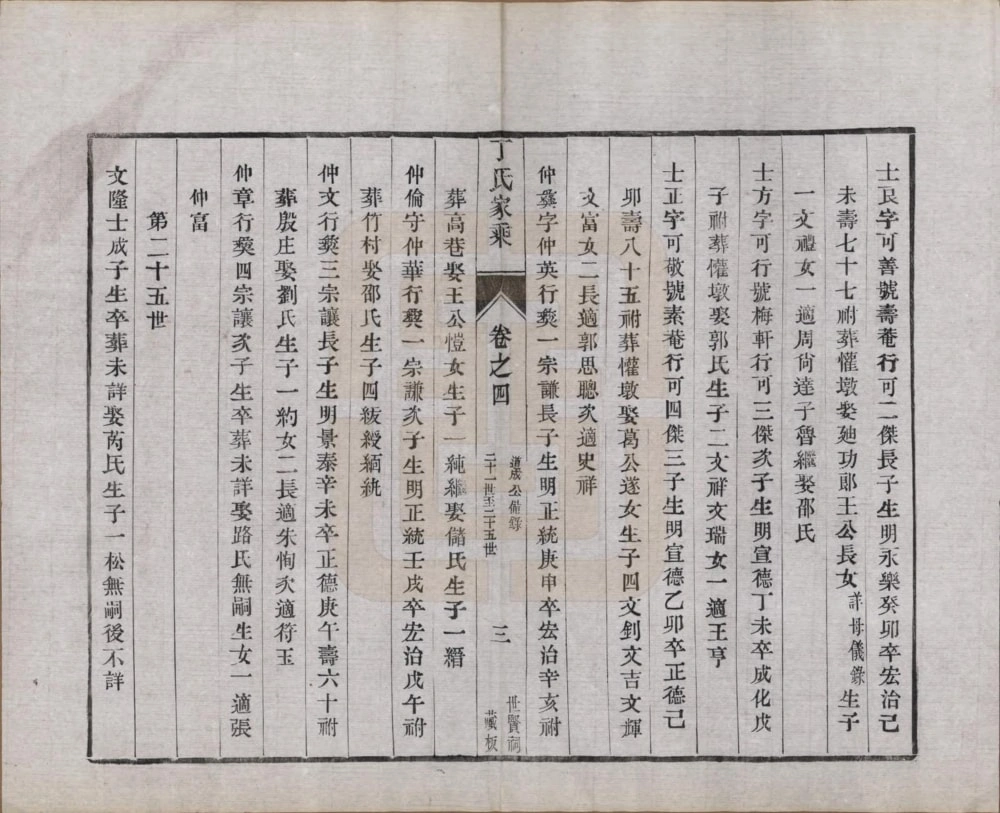 士良字可善號壽菴行可二傑長子生明永樂癸卯卒宏治己
未壽七十七祔葬懽墩娶廸功郞王公長女詳母儀錄生子
一文禮女一適周尙達子魯繼娶邵氏
士方字可行號梅軒行可三傑次子生明宣德丁未卒成化戊
子祔葬懽墩娶郭氏生子二文祥文瑞女一適王亨
士正字可敬號素菴行可四傑三子生明宣德乙卯卒正德己
卯壽八十五祔葬懽墩娶葛公遂女生子四文釗文吉文輝
文富女二長適郭思聰次適史祥
仲彝字仲英行爕一宗謙長子生明正統庚申卒宏治辛亥祔
丁氏家乘
卷之四
道成公備錄
二十一世至二十五世
三
世賢祠
藏板
葬高巷娶王公愷女生子一純繼娶儲氏生子一縉
仲倫守仲華行爕一宗謙次子生明正統壬戌卒宏治戊午祔
葬竹村娶邵氏生子四紱綬緬統
仲文行爕三宗讓長子生明景泰辛未卒正德庚午壽六十祔
葬殷庄娶劉氏生子一約女二長適朱恂次適符玉
仲章行爕四宗讓次子生卒葬未詳娶路氏無嗣生女一適張
仲富
第二十五世
文隆士成子生卒葬未詳娶芮氏生子一松無嗣後不詳